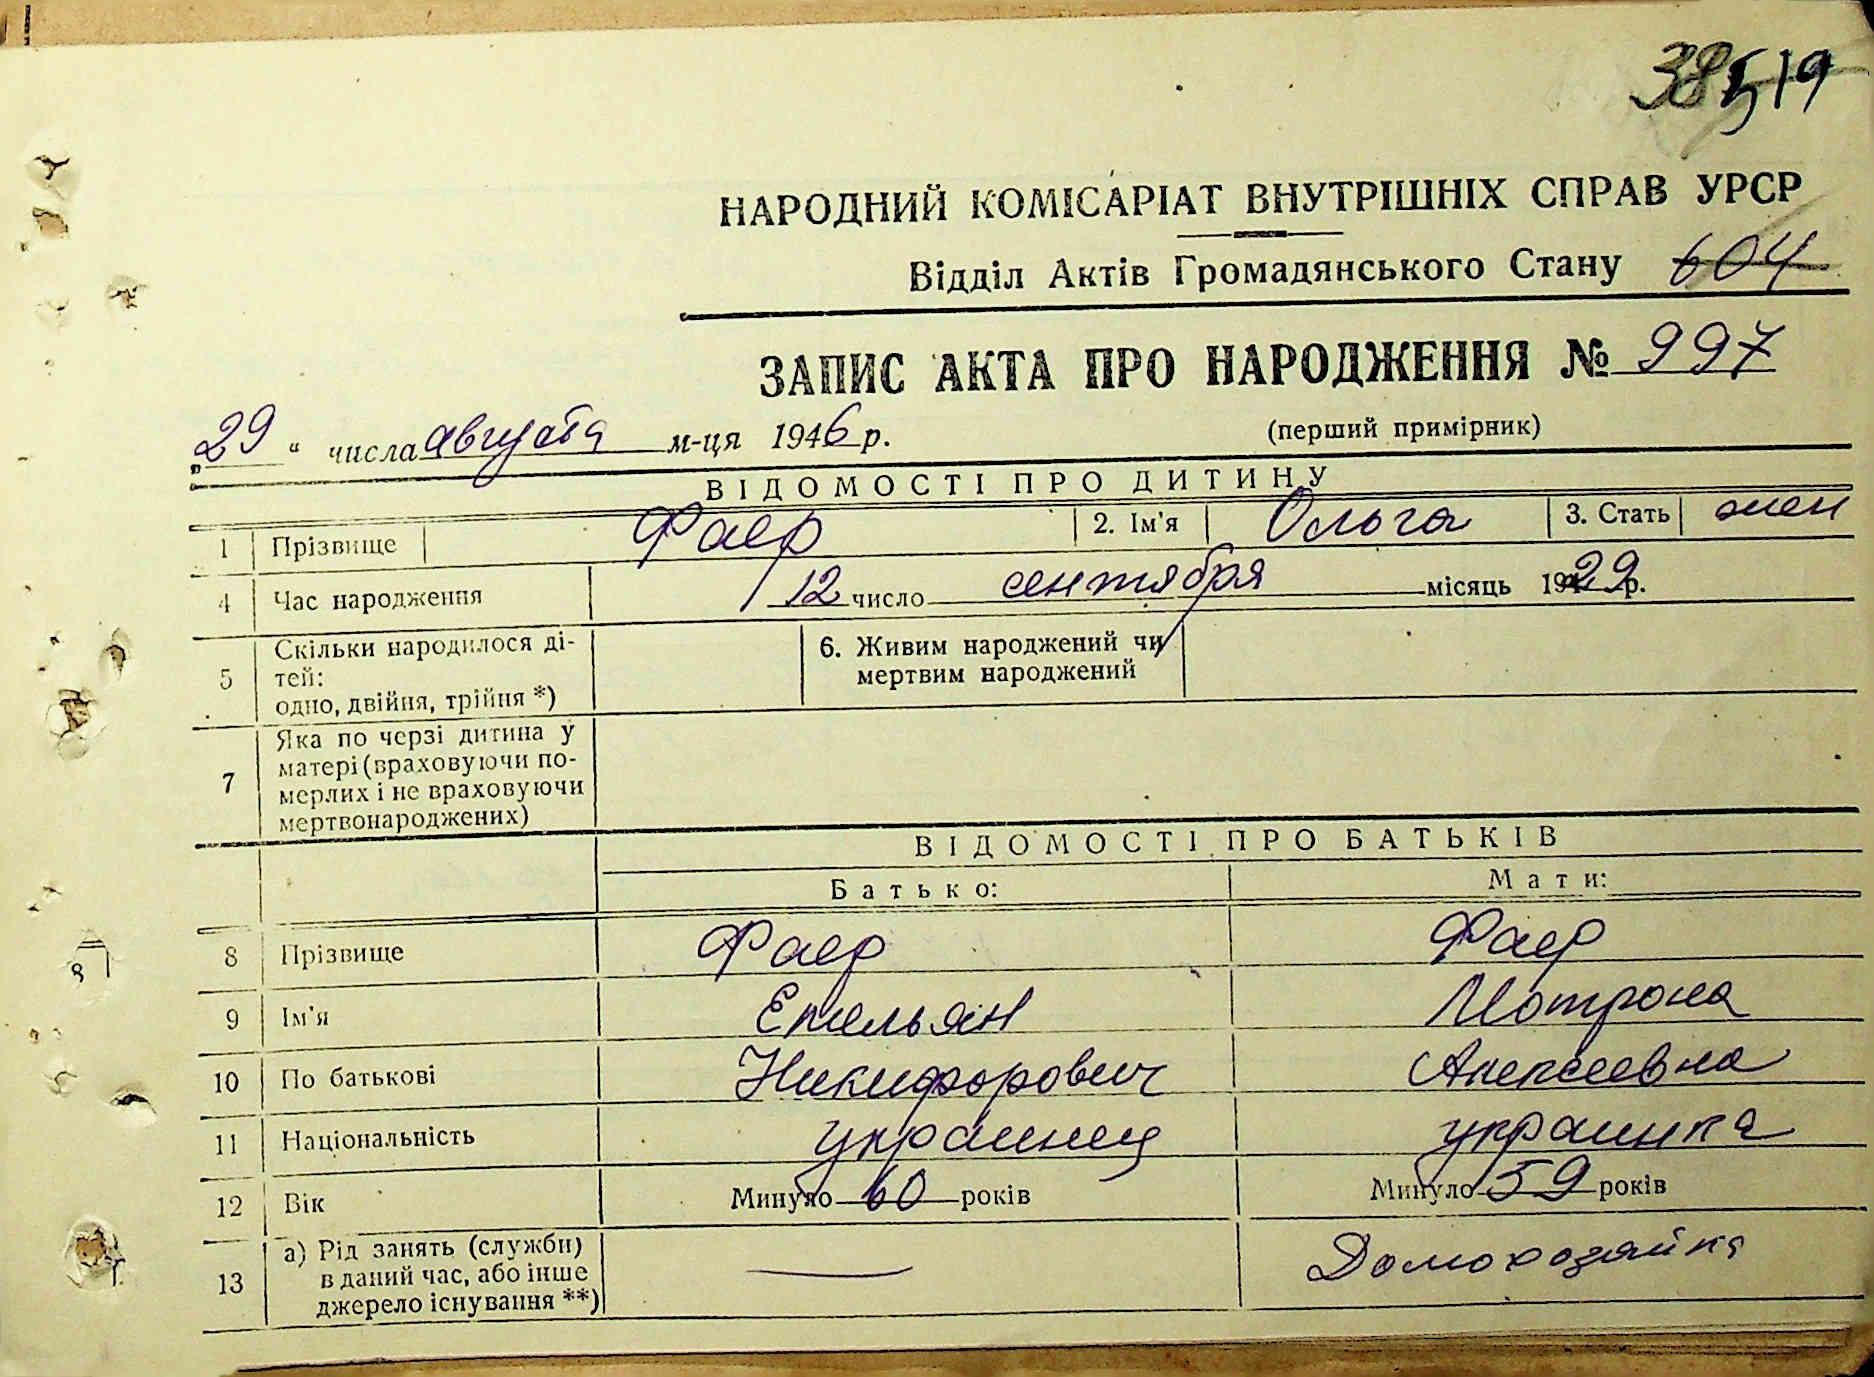 519
НАРОДНИЙ КОМІСАРІАТ ВНУТРІШНІХ СПРАВ УРСР
Відділ Актів Громадянського Стану 604
ЗАПИС АКТА ПРО НАРОДЖЕННЯ № 997
„29“ числа августа м-ця 1946 р. (перший примірник)
ВІДОМОСТІ ПРО ДИТИНУ
1 Прізвище Фаер 2. Ім'я Ольга 3. Стать жен
4 Час народження 12 число сентября місяць 1929 р.
5 Скільки народилося ді-
тей:
одно, двійня, трійня *)
6. Живим народжений чи
мертвим народжений
7 Яка по черзі дитина у
матері (враховуючи по-
мерлих і не враховуючи
мертвонароджених)
ВІДОМОСТІ ПРО БАТЬКІВ
Батько: Мати:
8 Прізвище Фаер Фаер
9 Ім'я Емельян Мотрона
10 По батькові Никифорович Алексеевна
11 Національність украинец украинка
12 Вік Минуло 60 років Минуло 59 років
13 а) Рід занять (служби)
в даний час, або інше
джерело існування **)
— Домохозяйка